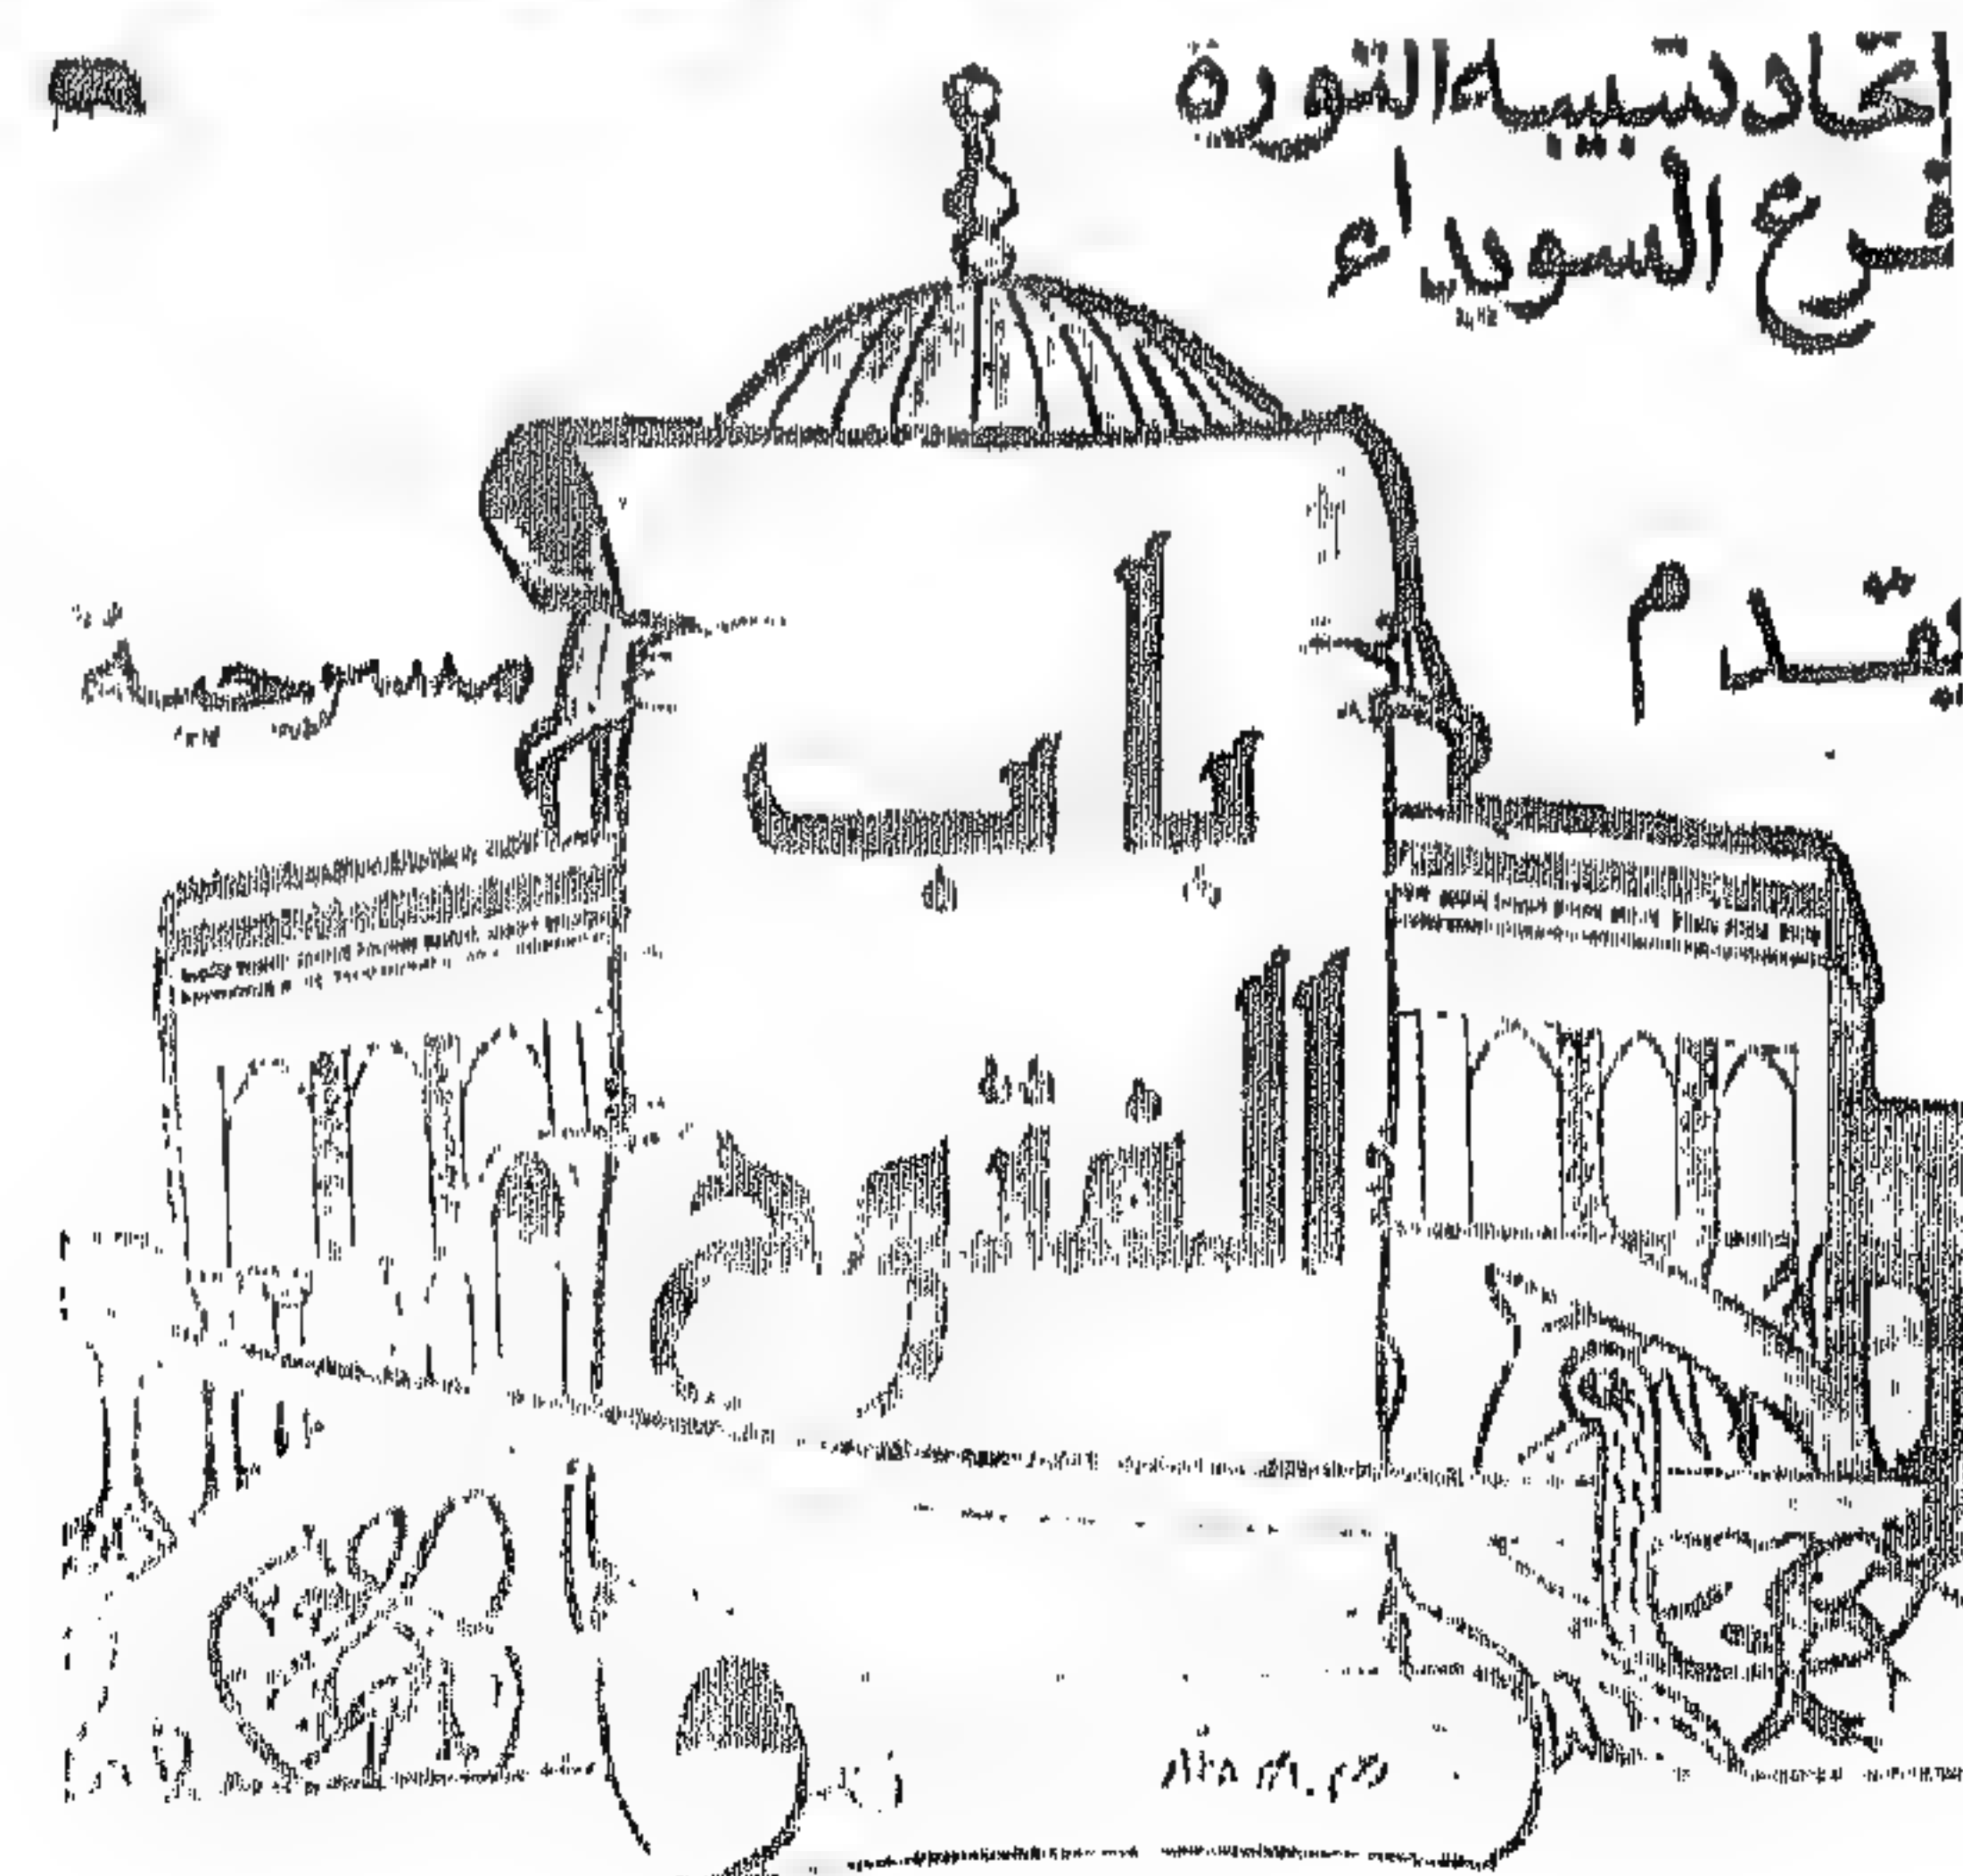 إتحاد شبيبه الثورة
فرع السويداء
يقـدم
مسرحية
باب
الفتوح